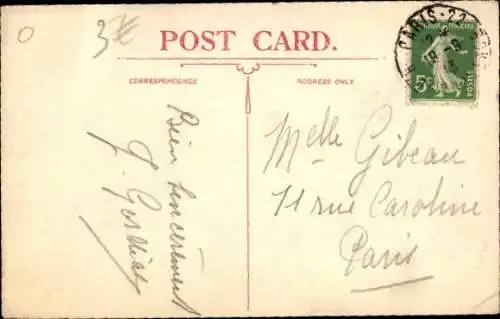 0
3
POST CARD.
CORRESPONDENCE
ADDRESS ONLY
PARIS · 22
5c
POSTES
Bien sincèrement
Melle Gibeau
11 rue Caroline
Paris